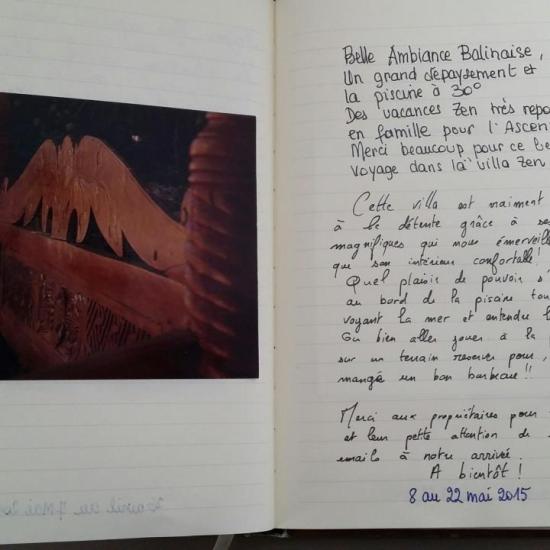 Belle Ambiance Balinaise,
Un grand dépaysement et
la piscine à 30°
Des vacances Zen très repo
en famille pour l'Ascen
Merci beaucoup pour ce be
voyage dans la villa Zen
Cette villa est vraiment
à la détente grâce à se
magnifiques qui nous émerveill
que son intérieur confortable!
Quel plaisir de pouvoir s'
au bord de la piscine tou
voyant la mer et entendre l
Ou bien aller jouer à la p
sur un terrain reserver pour,
mangé un bon barbecue!!
Merci aux propriétaires pour
et leur petite attention de
emails à notre arrivée.
A bientôt!
8 au 22 mai 2015